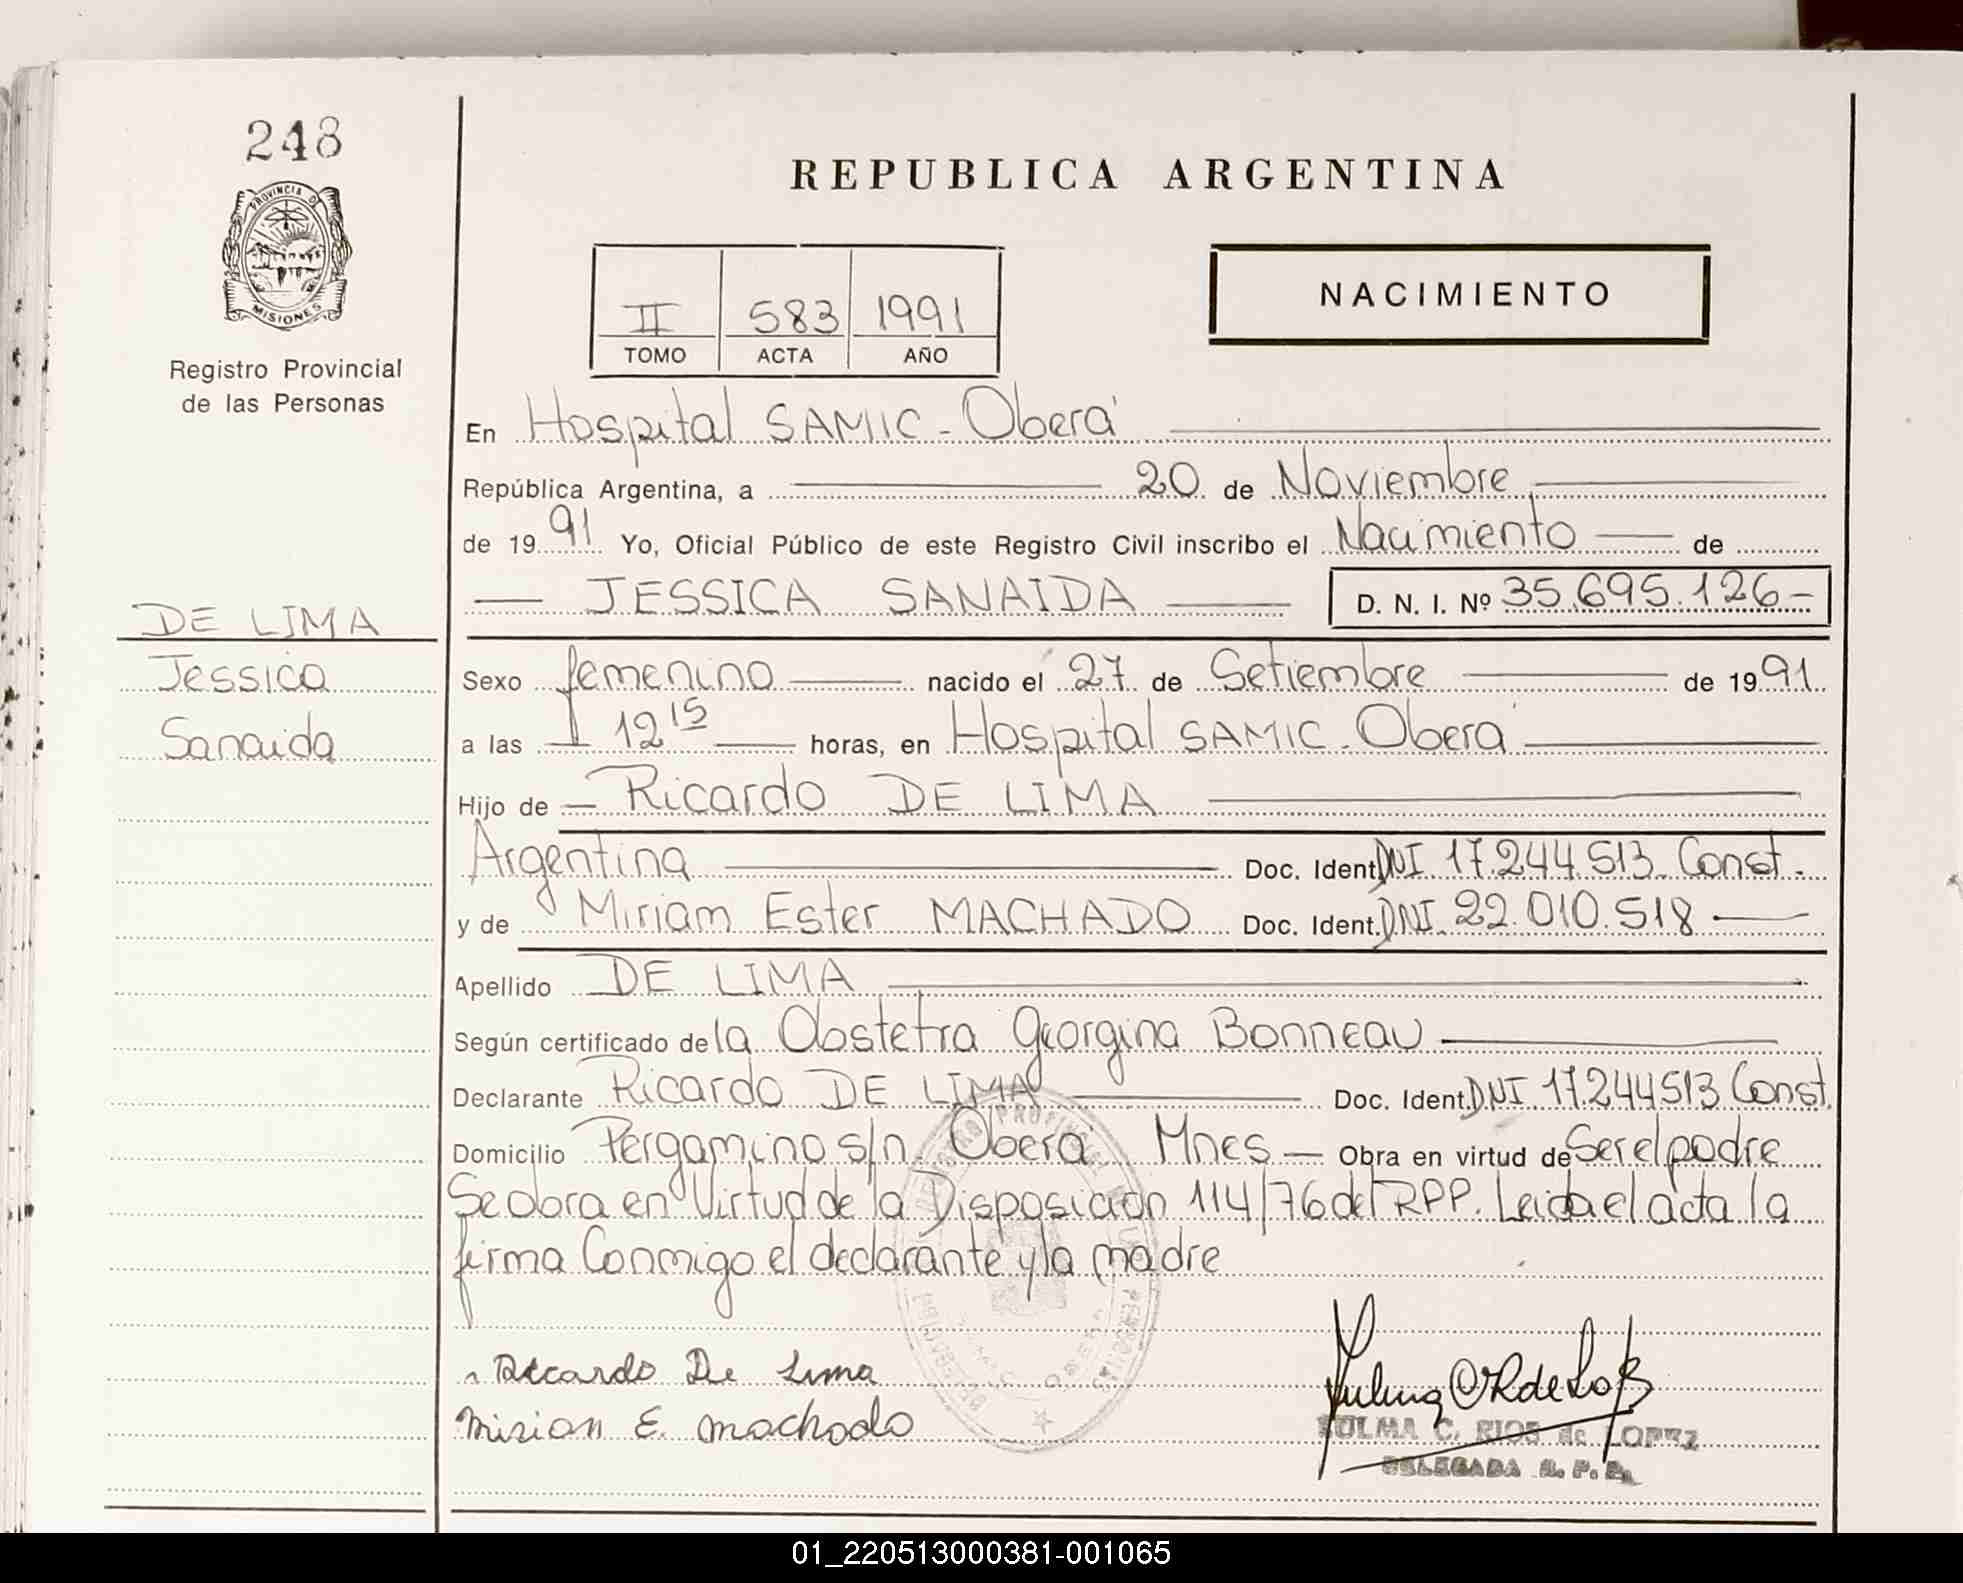 248
REPUBLICA ARGENTINA
PROVINCIA DE
MISIONES
Registro Provincial
de las Personas
II 583 1991
TOMO ACTA AÑO
NACIMIENTO
En Hospital SAMIC - Oberá
República Argentina, a 20 de Noviembre
de 1991 Yo, Oficial Público de este Registro Civil inscribo el Nacimiento de
JESSICA SANAIDA D. N. I. Nº 35.695.126-
DE LIMA
Jessica
Sanaida
Sexo femenino nacido el 27 de Setiembre de 1991
a las 12 15 horas, en Hospital SAMIC - Oberá
Hijo de Ricardo DE LIMA
Argentina Doc. Ident. DNI 17.244.513 Const.
y de Miriam Ester MACHADO Doc. Ident. DNI 22.010.518
Apellido DE LIMA
Según certificado de la Obstetra Georgina Bonneau
Declarante Ricardo DE LIMA Doc. Ident. DNI 17.244513 Const.
Domicilio Pergamino s/n. Oberá Mnes. Obra en virtud de Ser el padre
Se obra en Virtud de la Disposición 114/76 del RPP. Leida el acta la
firma Conmigo el declarante y la madre
Ricardo De Lima
Mirian E. Machado
C. RIOS de LOPEZ
DELEGADA R. P. P.
01_220513000381-001065